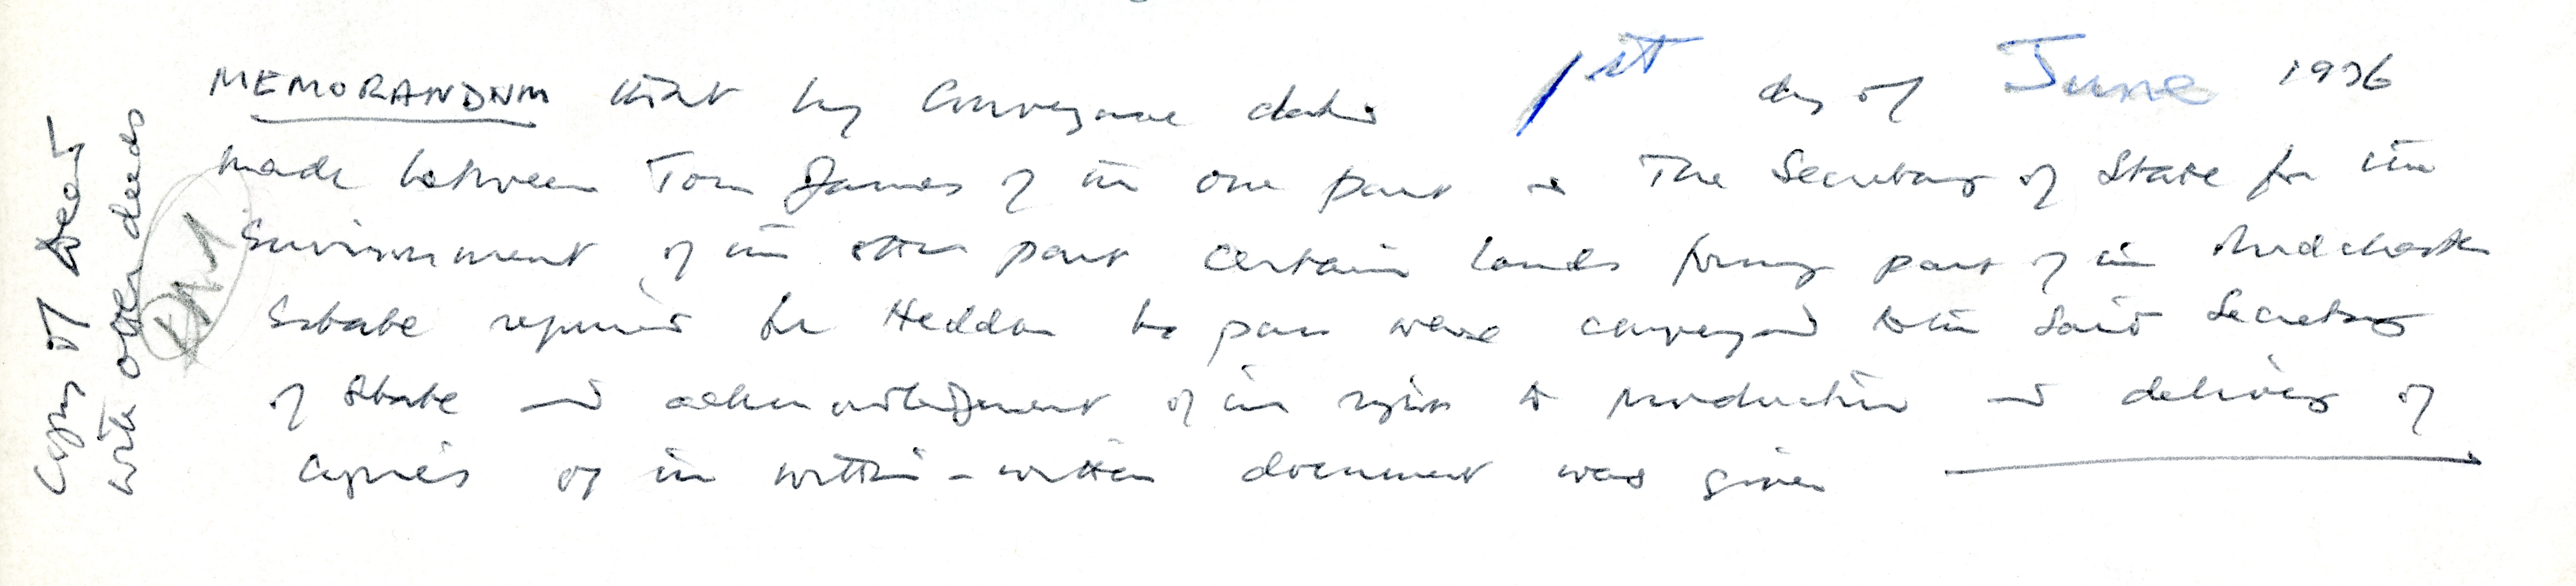 MEMORANDUM that by Conveyance dated 1st day of June 1976
made between Tom James of the one part and The Secretary of State for the
Environment of the other part certain lands forming part of the Rudchester
Estate required for Heddon by pass were conveyed to the said Secretary
of State and acknowledgement of the right to production and delivery of
Copies of the within-written document was given
Copy of deed
with other deeds